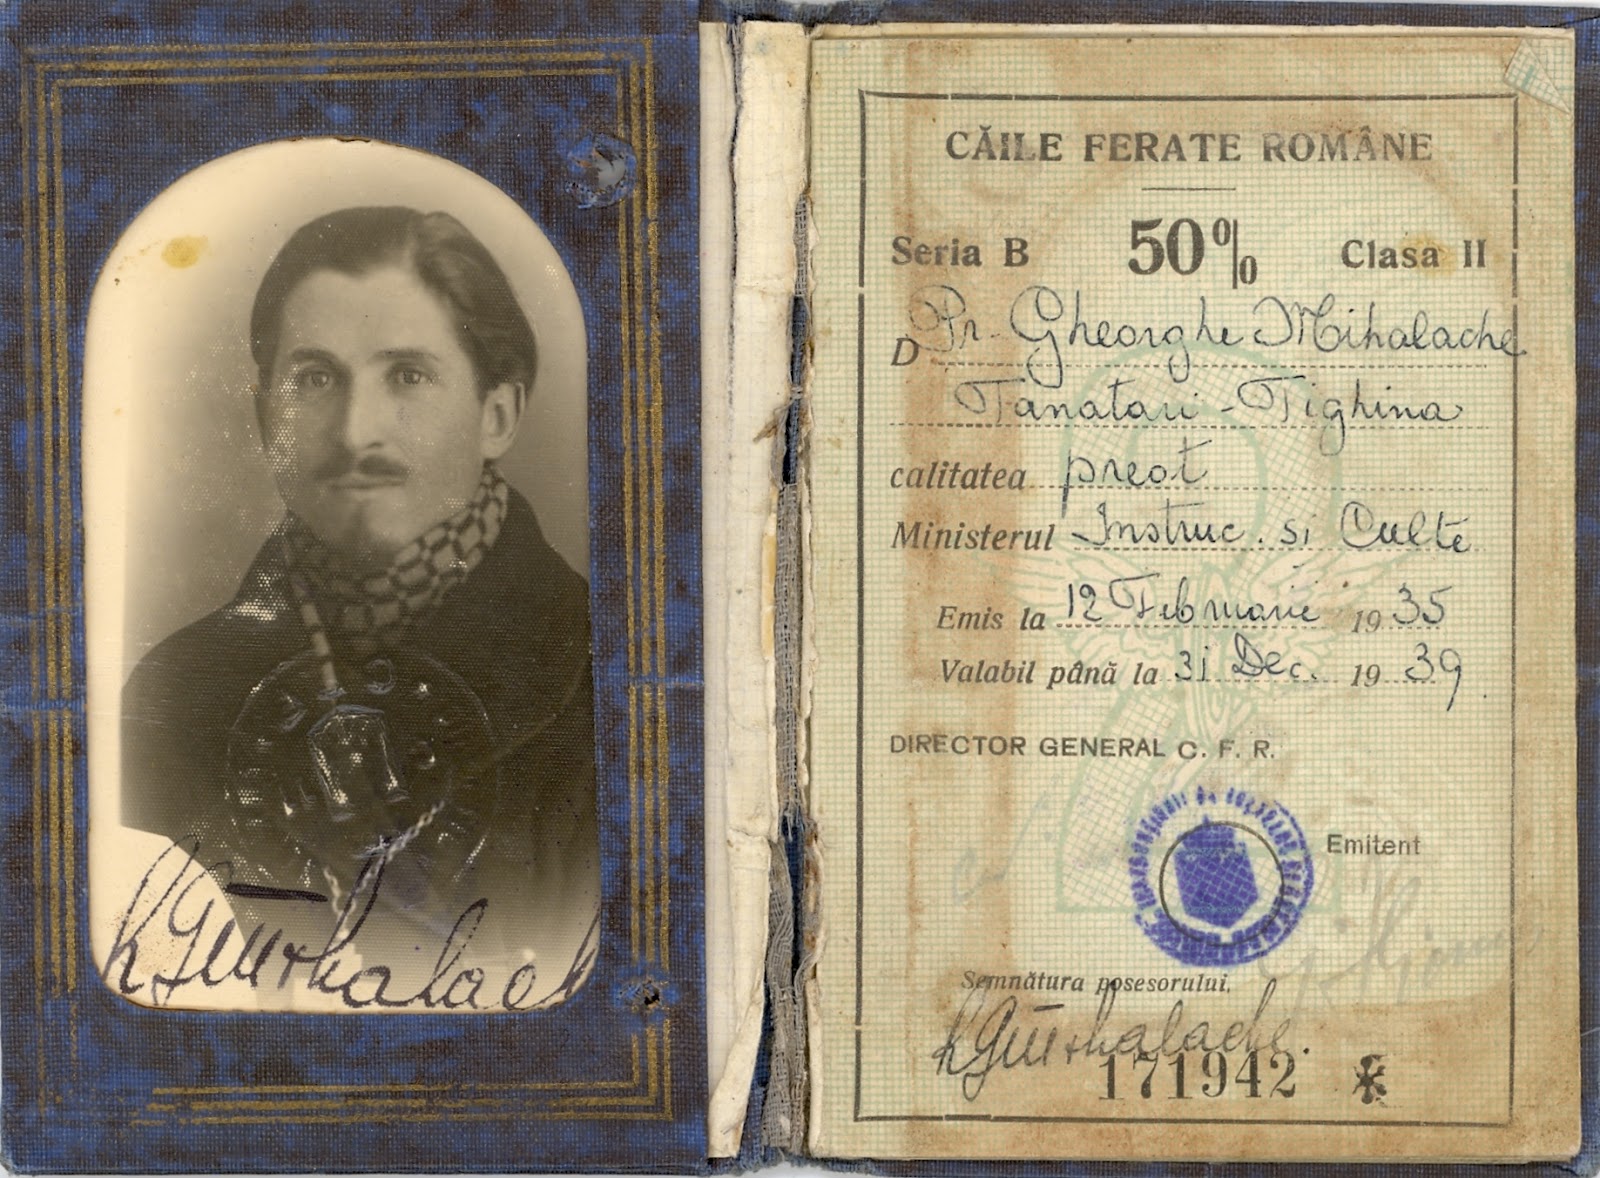 CĂILE FERATE ROMÂNE
Seria B 50% Clasa II
D Pr. Gheorghe Mihalache
Tanatari - Tighina
calitatea preot
Ministerul Instruc. si Culte
Emis la 12 Februarie 1935
Valabil până la 31 Dec. 1939
DIRECTOR GENERAL C. F. R.
Emitent
Semnătura posesorului,
171942 *